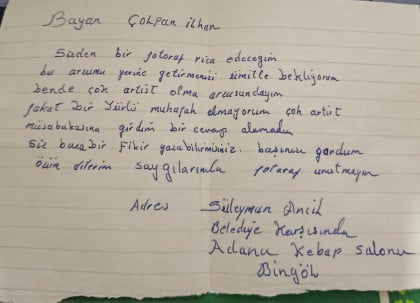 Bayan Çolpan ilhan
Sizden bir fotoraf rica edeceğim
bu arzumu yerine getirmenizi ümitle bekliyorum
bende çok artist olma arzusundayım
fakat bir türlü muhafak olmayorum çok artist
müsabukasına girdim bir cevap alamadım
siz bana bir fikir yazabilirmisiniz. başınızı
özür dilerim saygılarımla fotoraf unutmayın
Adres Süleyman
Belediye Karşısında
Adana Kebap Salonu
Bingöl